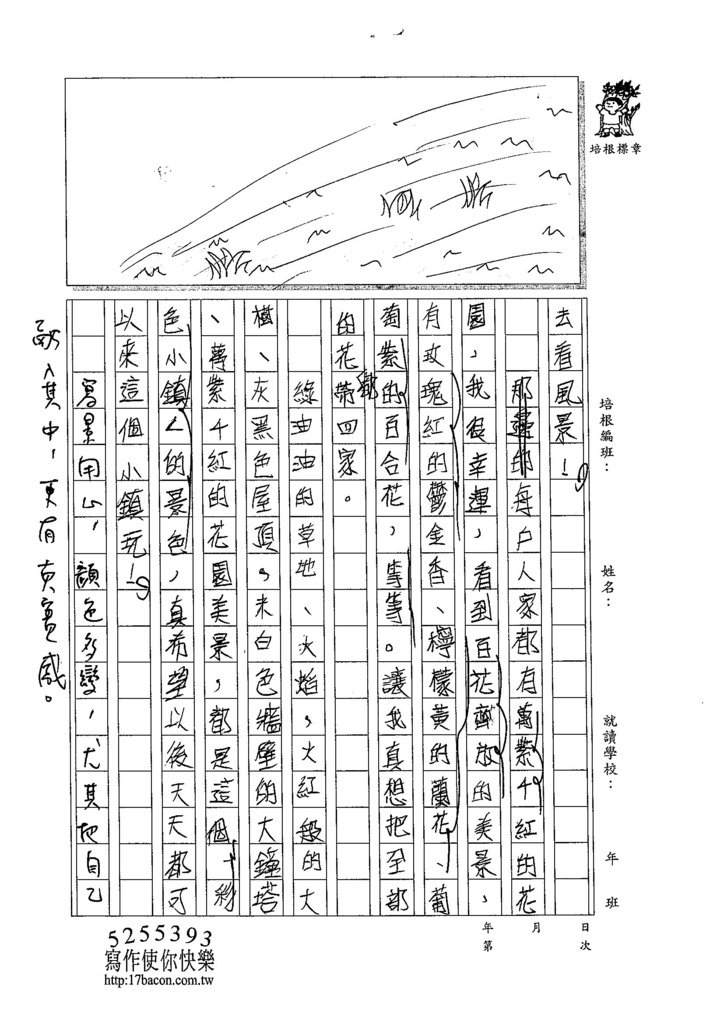 培根標章
培根編班：
姓名：
就讀學校：
年
班
年
月
日
第
次
去看風景！。
那裡的每戶人家都有萬紫千紅的花
園，我很幸運，看到百花齊放的美景，
有玫瑰紅的鬱金香、檸檬黃的蘭花、葡
萄紫的百合花，等等。讓我真想把全部
的花帶回家。
綠油油的草地、火焰，火紅般的大
樹、灰黑色屋頂，米白色牆壁的大鐘塔
、萬紫千紅的花園美景，都是這個，彩
色小鎮的景色，真希望以後天天都可
以來這個小鎮玩！。
寫景用心，顏色多變，尤其把自己
融入其中，更有真實感。
5255393
寫作使你快樂
http:17bacon.com.tw